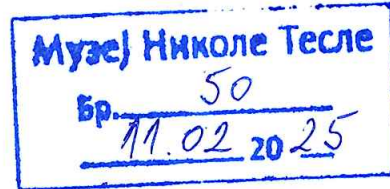 Музеј Николе Тесле
Бр. 50
11.02 20 25